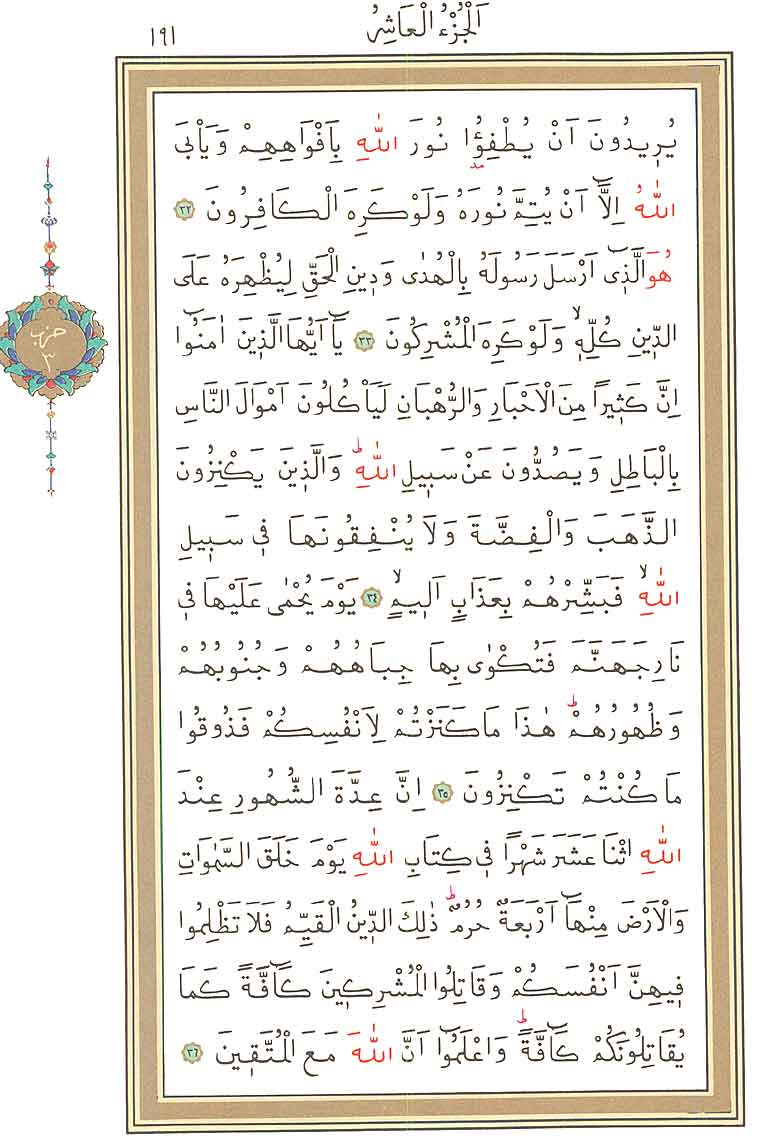 اَلْجُزْءُ الْعَاشِرُ
١٩١
يُرِيدُونَ اَنْ يُطْفِؤُ۫ا نُورَ اللّٰهِ بِاَفْوَاهِهِمْ وَيَأْبَى
اللّٰهُ اِلَّٓا اَنْ يُتِمَّ نُورَهُ وَلَوْ كَرِهَ الْكَافِرُونَ ٣٢
هُوَ الَّذ۪ٓي اَرْسَلَ رَسُولَهُ بِالْهُدٰى وَد۪ينِ الْحَقِّ لِيُظْهِرَهُ عَلَى
الدّ۪ينِ كُلِّه۪ۙ وَلَوْ كَرِهَ الْمُشْرِكُونَ ٣٣ يَٓا اَيُّهَا الَّذ۪ينَ اٰمَنُٓوا
اِنَّ كَث۪يرًا مِنَ الْاَحْبَارِ وَالرُّهْبَانِ لَيَأْكُلُونَ اَمْوَالَ النَّاسِ
بِالْبَاطِلِ وَيَصُدُّونَ عَنْ سَب۪يلِ اللّٰهِۜ وَالَّذ۪ينَ يَكْنِزُونَ
الذَّهَبَ وَالْفِضَّةَ وَلَا يُنْفِقُونَهَا ف۪ي سَب۪يلِ
اللّٰهِۙ فَبَشِّرْهُمْ بِعَذَابٍ اَل۪يمٍۙ ٣٤ يَوْمَ يُحْمٰى عَلَيْهَا ف۪ي
نَارِ جَهَنَّمَ فَتُكْوٰى بِهَا جِبَاهُهُمْ وَجُنُوبُهُمْ
وَظُهُورُهُمْۜ هٰذَا مَا كَنَزْتُمْ لِاَنْفُسِكُمْ فَذُوقُوا
مَا كُنْتُمْ تَكْنِزُونَ ٣٥ اِنَّ عِدَّةَ الشُّهُورِ عِنْدَ
اللّٰهِ اثْنَا عَشَرَ شَهْرًا ف۪ي كِتَابِ اللّٰهِ يَوْمَ خَلَقَ السَّمٰوَاتِ
وَالْاَرْضَ مِنْهَٓا اَرْبَعَةٌ حُرُمٌۜ ذٰلِكَ الدّ۪ينُ الْقَيِّمُ فَلَا تَظْلِمُوا
ف۪يهِنَّ اَنْفُسَكُمْ وَقَاتِلُوا الْمُشْرِك۪ينَ كَٓافَّةً كَمَا
يُقَاتِلُونَكُمْ كَٓافَّةًۜ وَاعْلَمُٓوا اَنَّ اللّٰهَ مَعَ الْمُتَّق۪ينَ ٣٦
حزب
٣